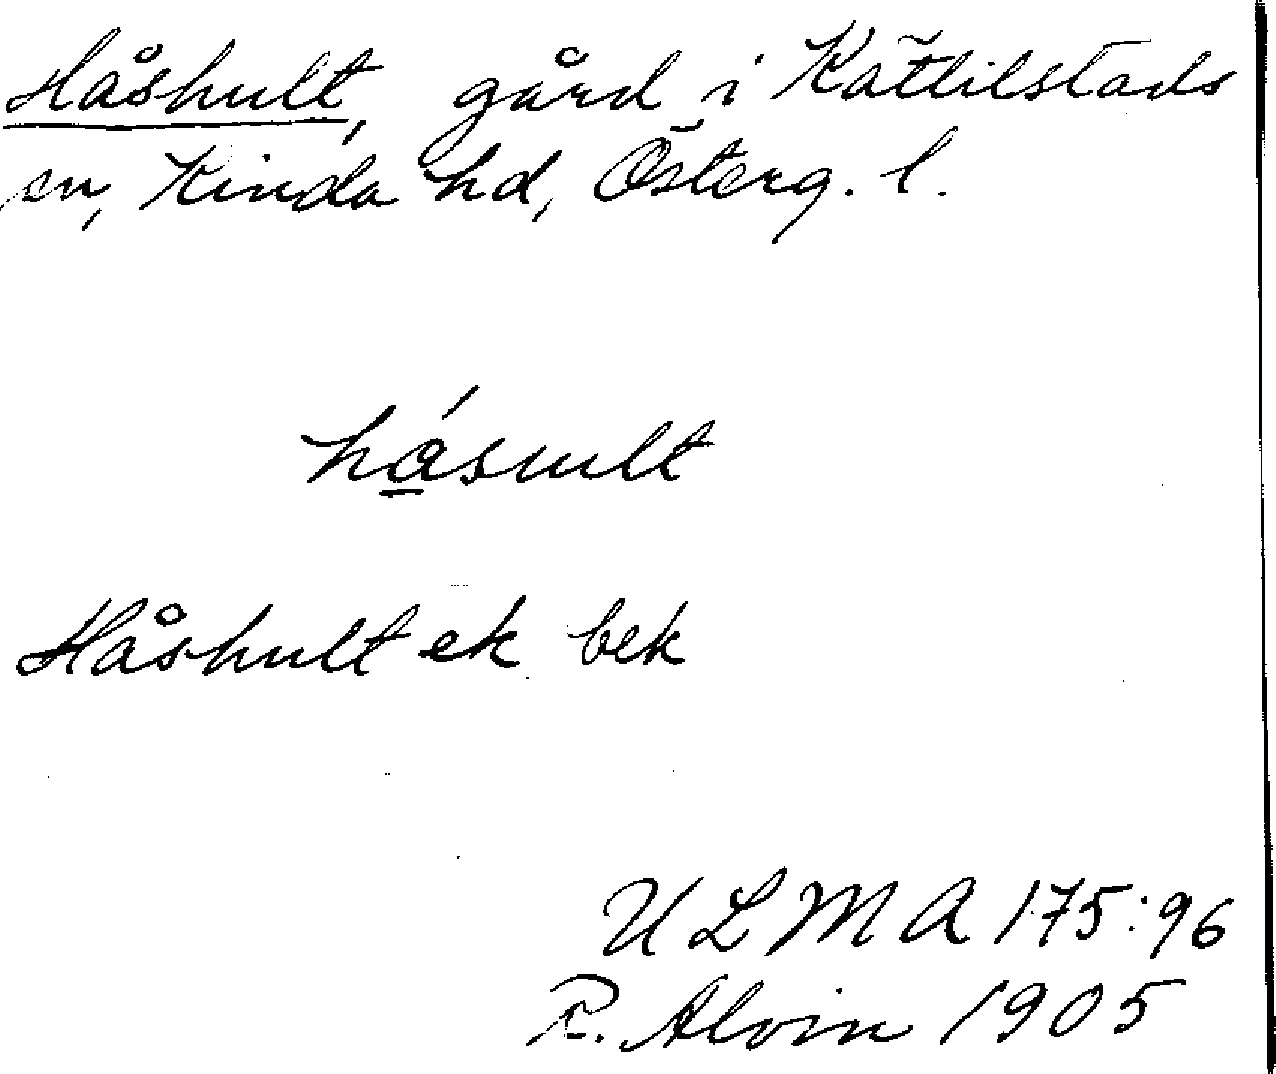 Håshult, gård i Kättilstads
sn, Kinda hd, Österg. l.
há̱sult
Håshult ek bek
ULMA 175:96
R. Alvin 1905